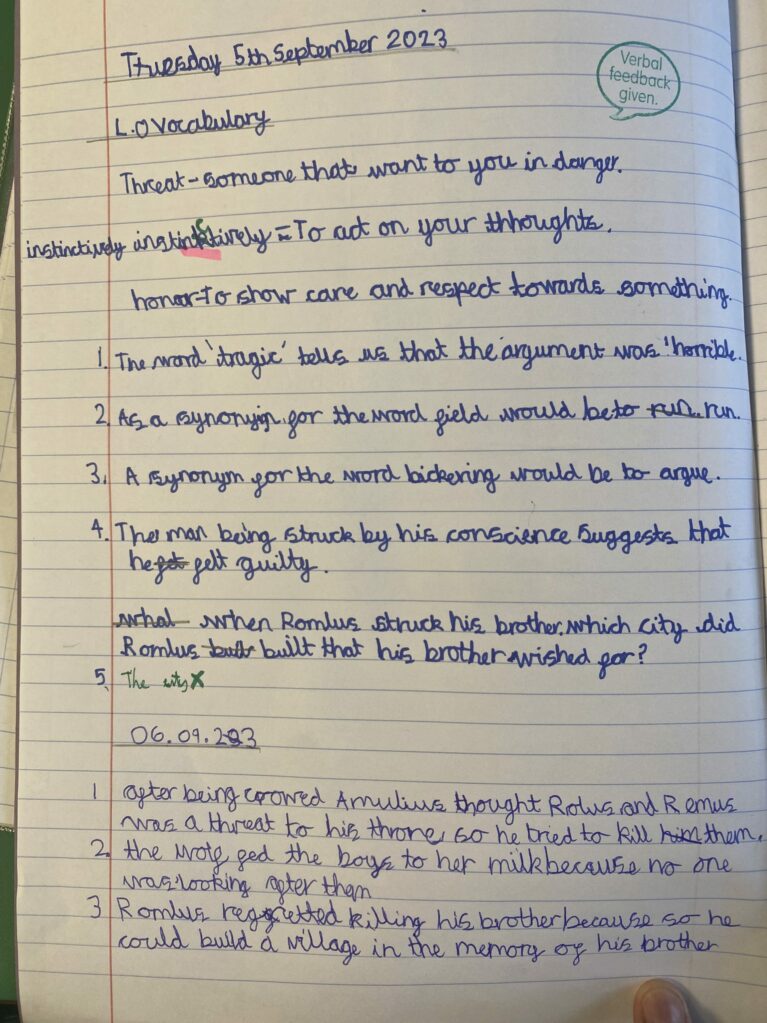 Tuesday 5th September 2023
Verbal
feedback
given.
L.O Vocabulary
Threat - someone that want to you in danger.
instinctively instinctively = To act on your thhoughts.
honor - To show care and respect towards something.
1. The word 'tragic' tells us that the argument was 'horrible.
2. As a synonym for the word field would be to run run.
3. A synonym for the word bickering would be to argue.
4. The man being struck by his conscience suggests that
he felt guilty.
what when Romlus struck his brother, which city did
Romlus built built that his brother wished for?
5. The city x
06.09.23
1 after being crowed Amulius thought Rolus and Remus
was a threat to his throne, so he tried to kill him them.
2. the wolf fed the boys to her milk because no one
was looking after than
3 Romlus regretted killing his brother because so he
could build a village in the memory of his brother